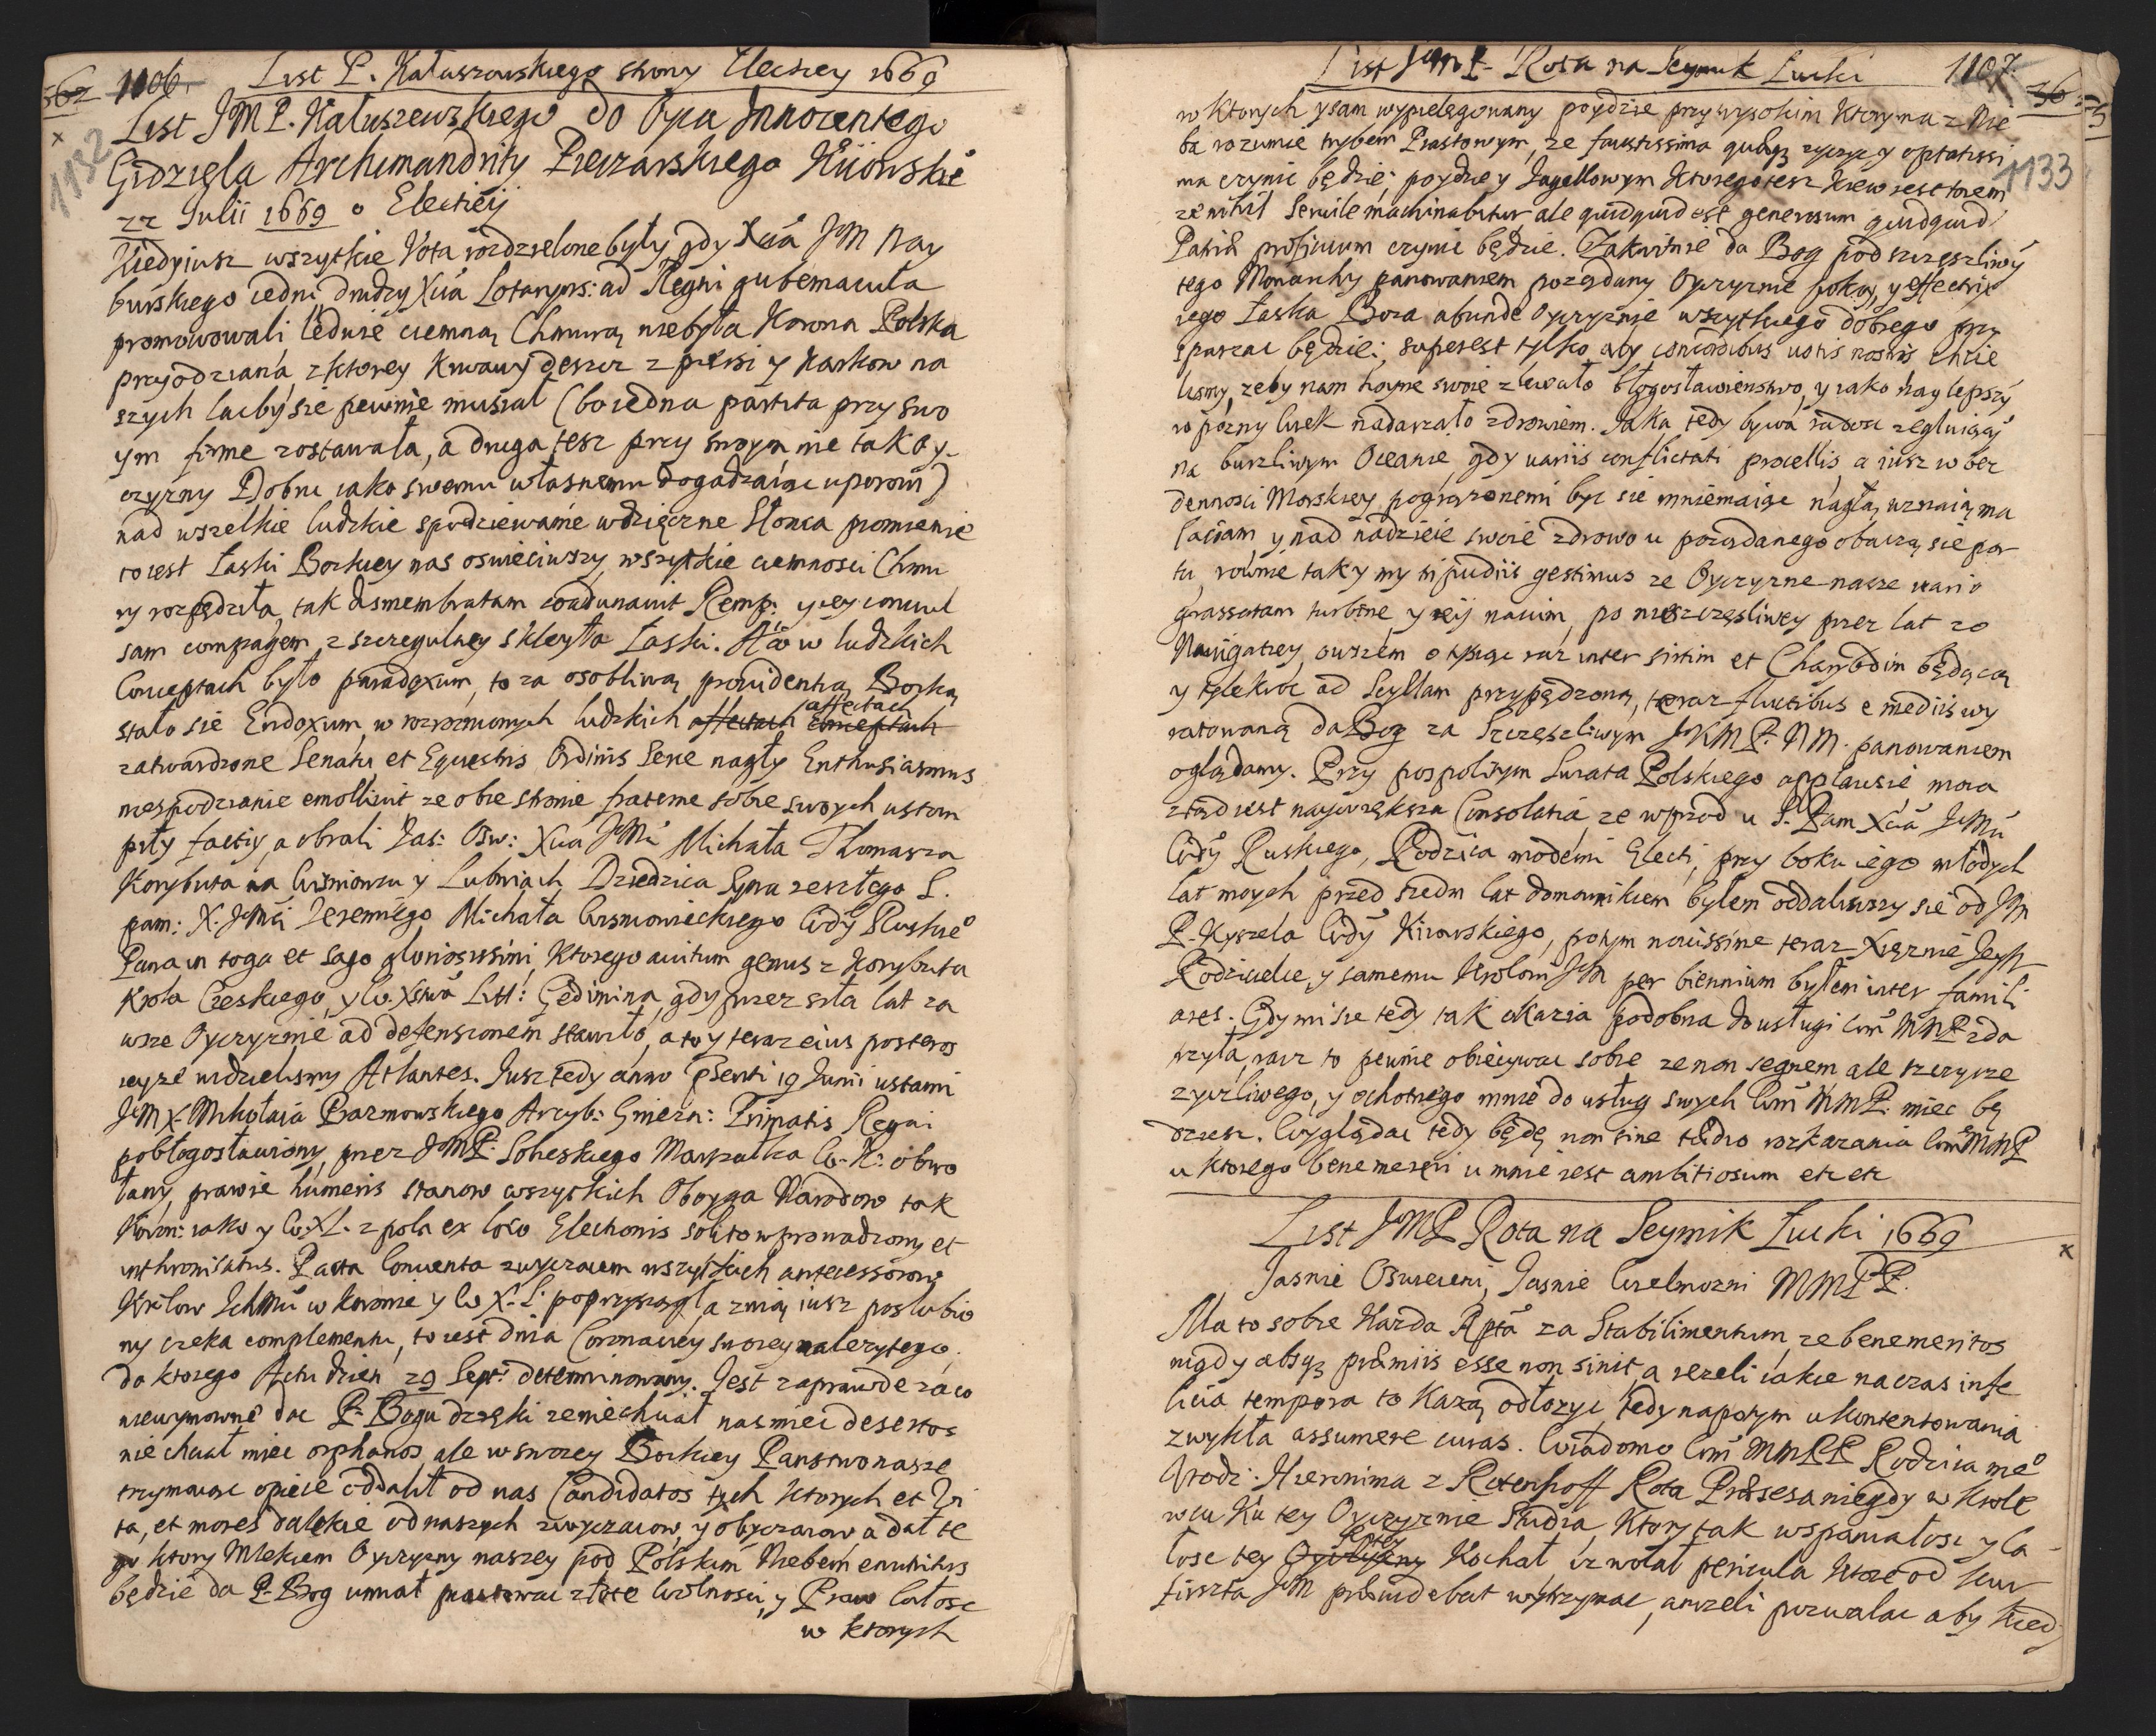 562 1106. List P. Kałuszowskiego strony Elechey 1669
List JMP. Kałuszewskiego do Oyca Innocentego
1132
Gidziela Archimandrity Pieczarskiego Kiiowskie°
22 Julii 1669 o Electiey
Kiedy iusz wszytkie Vota rozdzielone były gdy Xcia JM Nay
burskiego iedni, drudzy Xcia Lotaryns: ad Regni gubernacula
promowowali ledwie ciemną Chmurą niebyła Korona Polska
przyodziana, z ktorey krwawy deszcz z piersi y karkow na
szych lac by sie pewnie musiał (bo iedna partita przy swo
ym firme zostawała, a druga tesz przy swoym nie tak Oy-
czyzny Dobru iako swemu własnemu dogadzaiąc uporowi)
nad wszelkie ludzkie spodziewanie wdzięczne Słonca promienie
to iest Łaski Boskiey nas oswieciwszy wszytkie ciemnosci Chmu
ry rozpędziła, tak dismembratam coadunavit Remp: y iey convul
sam compagem z szczegulney skleyła Łaski. A co w ludzkich
Conceptach było paradoxum, to za osobliwą providentią Boską
stało sie Endoxum, w rozroznionych ludzkich affectach conceptach affectach
zatwardzone Senatu et Equestris Ordinis Serce nagły Enthusiasmus
niespodzianie emolliuit ze obie stronie fraterne sobie swoych ustom
piły factiy, a obrali Jas: Osw: Xcia JMci Michała Thomasza
Korybuta na Wisniowcu y Lubniach Dziedzica Syna zeszłego S.
pam: X. JMci Jeremiego Michała Wisniowieckiego Wdy Ruskie°
Pana in toga et sago gloriosissimi, Ktorego avitum genus z Korybuta
Krola Czeskiego, y W. Xstwa Litt: Gedimina, gdy przez siła lat za
wsze Oyczyznie ad defensionem stawiło, a to y teraz eius posteros
ieyze widzielismy Atlantes. Jusz tedy anno psenti 19 Junii ustami
JM X. Mikołaia Prazmowskiego Arcyb: Gniezn: Primatis Regni
pobłogosławiony, przez JMP. Sobieskiego Marszałka W. K: obwo
łany, prawie humeris stanow wszytkich Oboyga Narodow tak
Koron: iako y W. X L. z pola ex loco Elechonis solito wprowadzony et
inthronisatus. Pacta Conventa zwyczaiem wszytkich antecessorow
Krolow Ichmci w Koronie y W X. L: poprzysiągł, a z nią iusz poslubio
ny czeka complementu, to iest dnia Coronaciey swoiey nalezytego,
do ktorego Actu dzien 29 Sept: determinowany. Jest zaprawde za co
niewymowne dac P. Bogu dzięki ze niechciał nas miec desertos
nie chciał miec orphanos, ale w swoiey Boskiey Panstwo nasze
trzymaiąc opiece oddalił od nas Candidatos tych ktorych et Vi
ta, et mores dalekie od naszych zwyczaiow, y obyczaiow, a dał te
go ktory Mlekiem Oyczyzny naszey pod Polskim Niebem enutritus
będzie da P. Bog umiał piastowac złote Wolnosci, y Praw całosc
w ktorych
List JM P. Rota na Seymik Łucki 1107.
w ktorych y sam wypielęgowany poydzie przy wysokim ktory ma z Nie
ba rozumie trybem Piastowym, ze faustissima quæq3 zyczyc y optatissi
1133
ma czynic będzie; poydzie y Jagellowym ktorego tesz krew iest torem
ze nihil servile machinabitur ale quidquid est generosum quidquid
Patriæ proficuum czynic będzie. Zakwitnie da Bog pod szczęszliwy
tego Monarchy panowaniem poządany Oyczyznie pokoy, y effectrix
iego Łaska Boza abunde Oyczyznie wszytkiego dobrego przy
sparzac będzie; superest tylko aby concordibus votis nostris chcie
lismy, zeby nam hoyne swoie zlewało błogosławienstwo, y iako naylepszy
w pozny wiek nadarzało zdrowiem. Jaka tedy bywa radosc zegluiący
na burzliwym Oceanie, gdy variis conflictati procellis, a iusz w bez
dennosci Morskiey pogrązonemi byc sie mniemaiąc nagłą uznaią ma
laciam y nad nadzieie swoie zdrowo u poządanego obaczą sie por
tu, rownie tak y my tripudiis gestimus ze Oyczyzne nasze vario
grassatam turbine, y ieij navim, po nieszczęsliwey przez lat 20
Nawigatiey, owszem o tysiąc raz inter sirtim et Charybdim będącą
y tylekroc ad Scyllam przypędzoną, teraz fluctibus e mediis wy
ratowaną da Bog za Szczęszliwym JKMP. NM. panowaniem
oglądamy. Przy pospolitym Swiata Polskiego applausie moia
ztąd iest naywiększa Consolatia, ze wprzod u S. Pam Xcia JeMci
Wdy Ruskiego, Rodzica moderni Electi, przy boku iego młodych
lat moych przed siedm lat domownikiem byłem oddaliwszy sie od JM
P. Kyszela Wdy Kiiowskiego, potym novissime teraz Xięznie Jeyst
Rodzicielce, y samemu Krolowi JM per biennium byłem inter famili
ares. Gdy mi sie tedy tak okazia podobna do usługi Wm MMP zda
rzyła, racz to pewnie obiecywac sobie ze non segnem ale szczyrze
zyczliwego, y ochotnego mnie do usług swych Wm MMP. miec bę
dziesz. Wyglądac tedy będę non sine tædio rozkazania Wm MMP
u ktorego bene mereri u mnie iest ambitiosum etc etc
List JMP Rota na Seymik Łucki 1669
Jasnie Oswieceni, Jasnie Wielmozni MMPP.
Ma to sobie Kazda Rpta za Stabilimentum, ze benemeritos
nigdy absq3 præmiis esse non sinit, a iezeli iakie na czas infe
licia tempora to kazą odłozyc, tedy napotym ukontentowania
zwykła assumere curas. Wiadome Wm MMPP Rodzica me°
Urodz: Hieronima z Rotenhoff Rota Præsesa niegdy w Krole
wcu ku tey Oyczyznie Studia, Ktory tak wspaniałosc y ca
łosc tey Oyczyzny Kochał iz wolał pericula ktore od Kur
firszta JM præuidebat wytrzymac, anizeli pozwalac aby kied